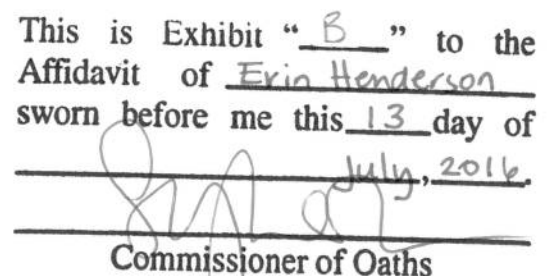 This is Exhibit “ B ” to the
Affidavit of Erin Henderson
sworn before me this 13 day of
July, 2016.
Commissioner of Oaths